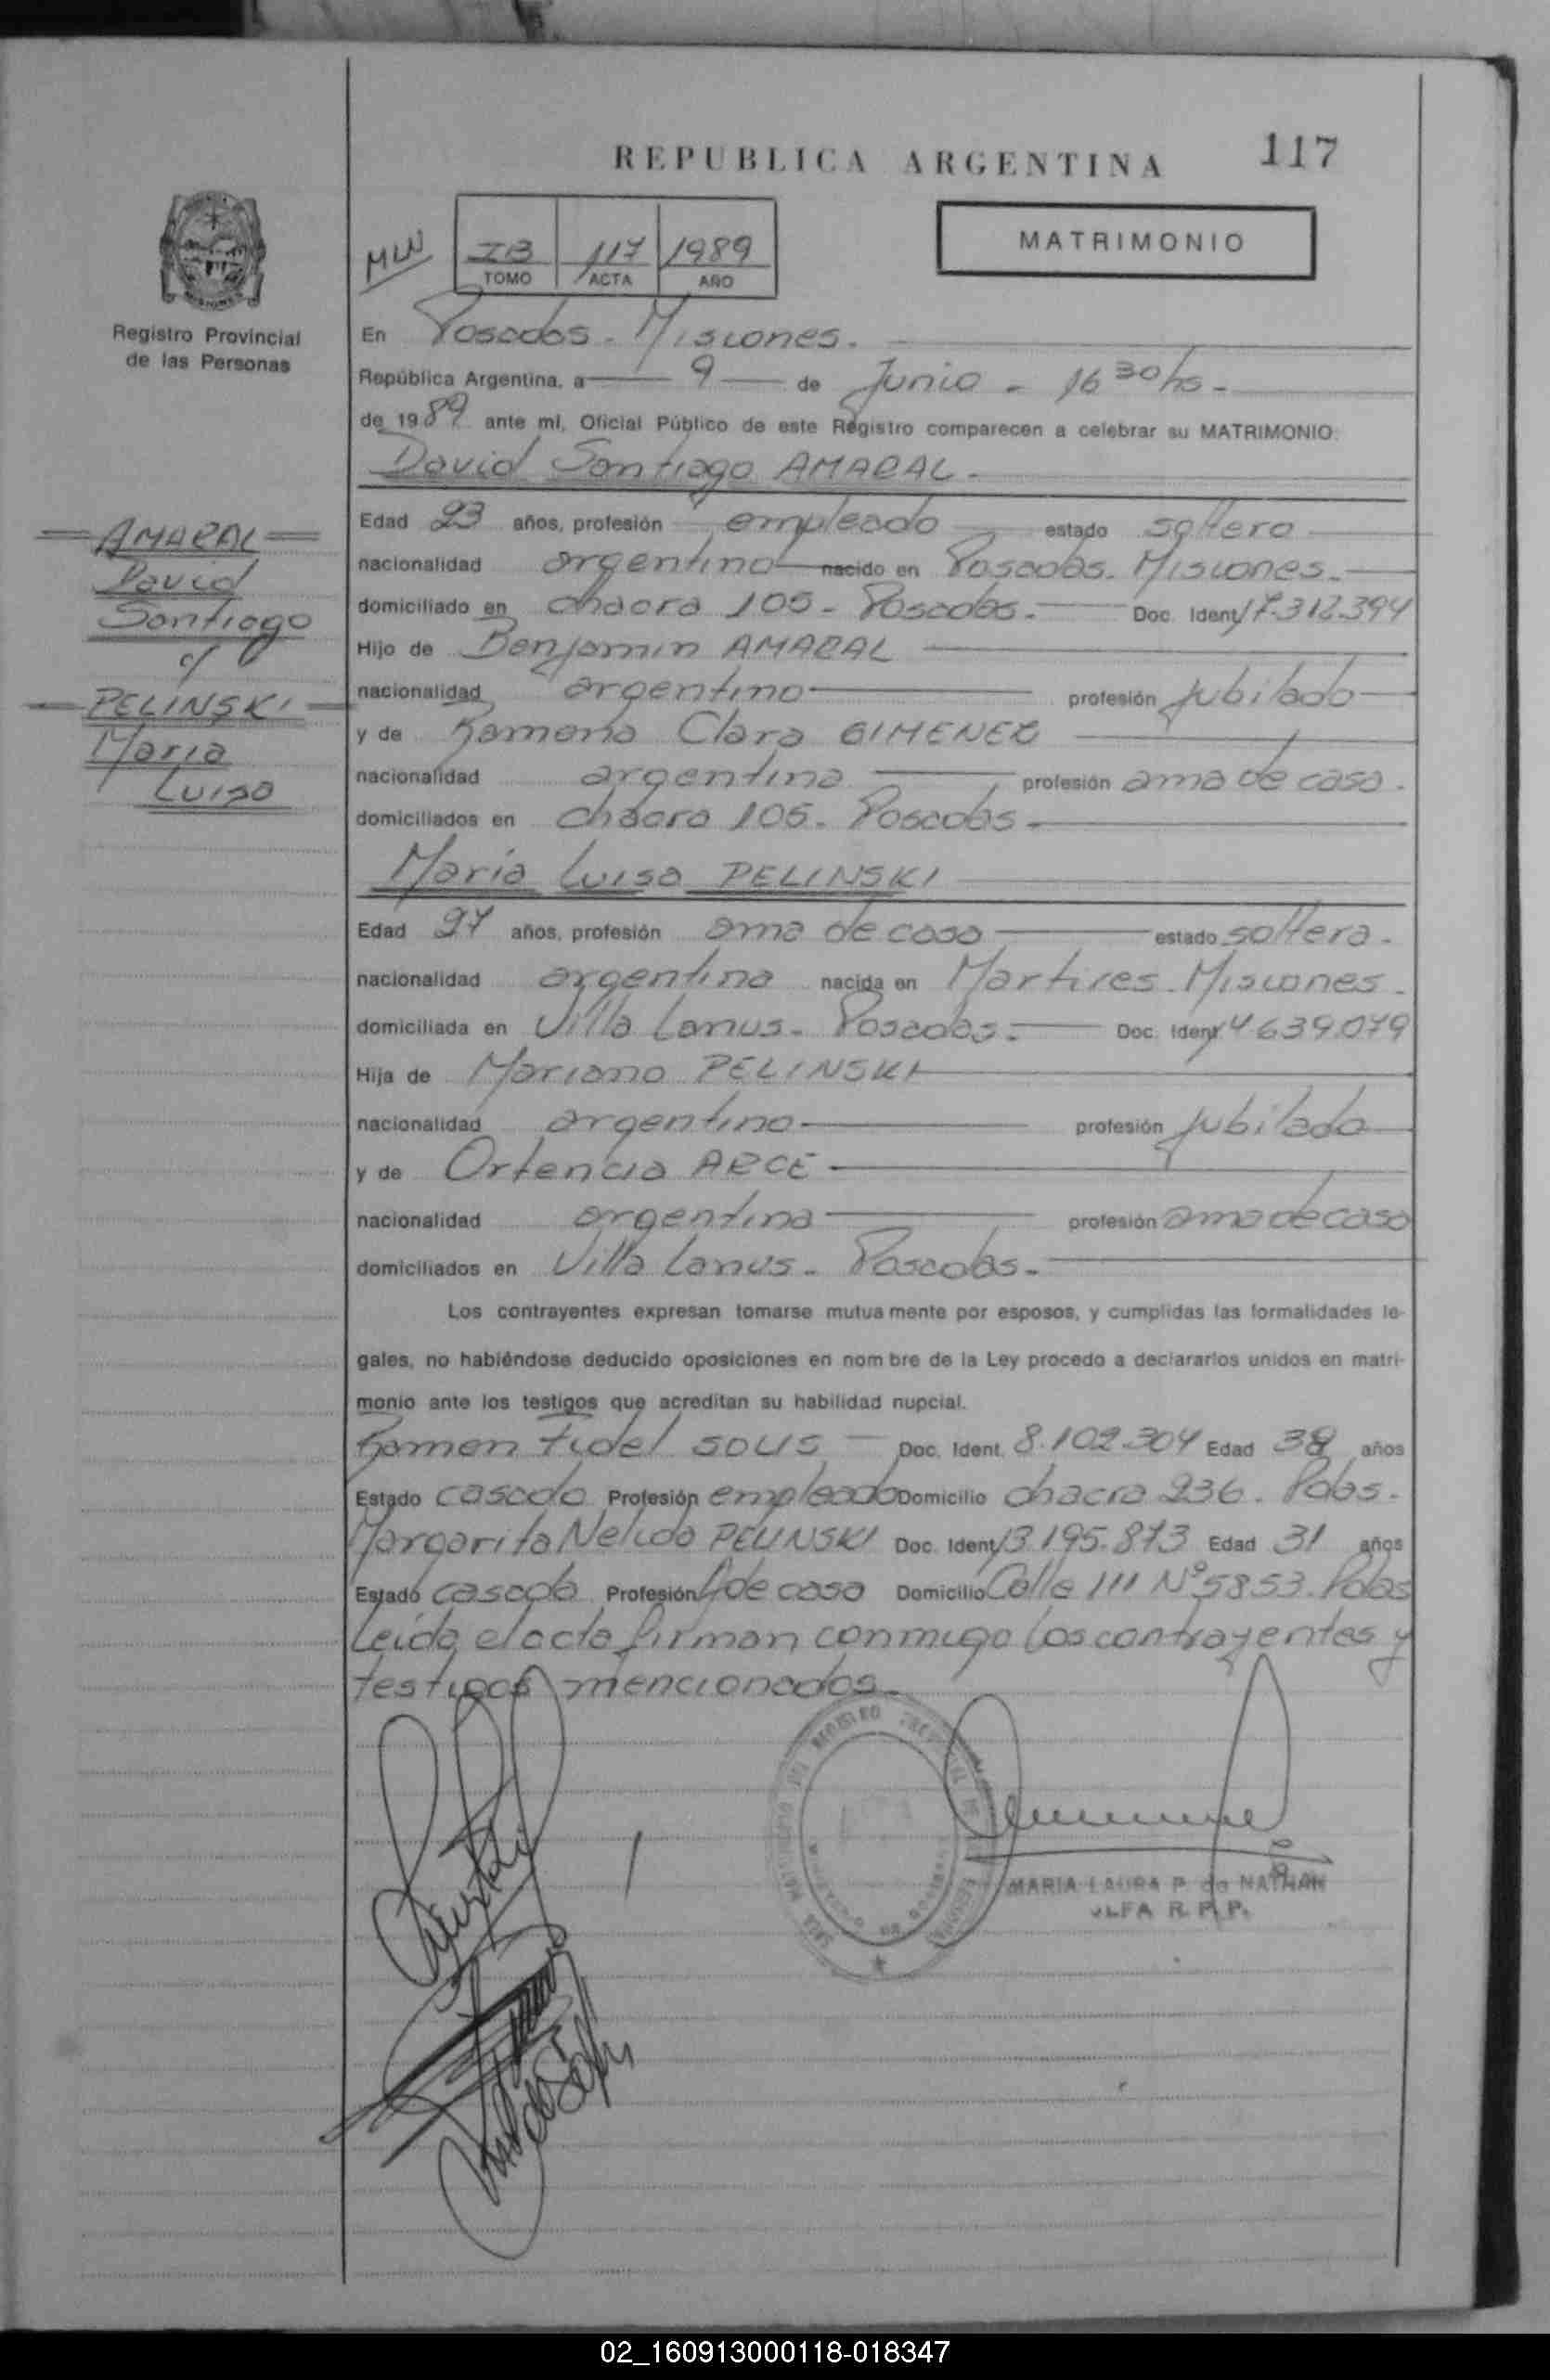 REPUBLICA ARGENTINA 117
MATRIMONIO
MLW
IB 117 1989
TOMO ACTA AÑO
Registro Provincial
de las Personas
En Posadas - Misiones.
República Argentina, a 9 de Junio - 16 30 hs -
de 1989 ante mí, Oficial Público de este Registro comparecen a celebrar su MATRIMONIO:
David Santiago AMARAL -
AMARAL
David
Santiago
c/
PELINSKI
Maria
Luisa
Edad 23 años, profesión empleado estado soltero
nacionalidad argentino nacido en Posadas. Misiones.
domiciliado en chacra 105 - Posadas. Doc. Ident 17.312.394
Hijo de Benjamin AMARAL
nacionalidad argentino profesión jubilado
y de Ramona Clara GIMENEZ
nacionalidad argentina profesión ama de casa.
domiciliados en chacra 105. Posadas
Maria Luisa PELINSKI
Edad 27 años, profesión ama de casa estado soltera.
nacionalidad argentina nacida en Martires. Misiones.
domiciliada en Villa Lanus. Posadas. Doc. Ident 14 639.079
Hija de Mariano PELINSKI
nacionalidad argentino profesión jubilado
y de Ortencia ARCE
nacionalidad argentina profesión ama de casa
domiciliados en Villa Lanus. Posadas.
Los contrayentes expresan tomarse mutua mente por esposos, y cumplidas las formalidades le-
gales, no habiéndose deducido oposiciones en nom bre de la Ley procedo a declararlos unidos en matri-
monio ante los testigos que acreditan su habilidad nupcial.
Ramon Fidel SOLIS Doc. Ident. 8.102.304 Edad 38 años
Estado casado Profesión empleado Domicilio chacra 236. Pdas.
Margarita Nelida PELINSKI Doc. Ident 13.195.873 Edad 31 años
Estado casada Profesión A de casa Domicilio Calle 111 Nº 5853. Pdas
Leida el acta firman conmigo los contrayentes y
testigos mencionados.
MARIA LAURA P. de NATHAN
R. P. P.
02_160913000118-018347